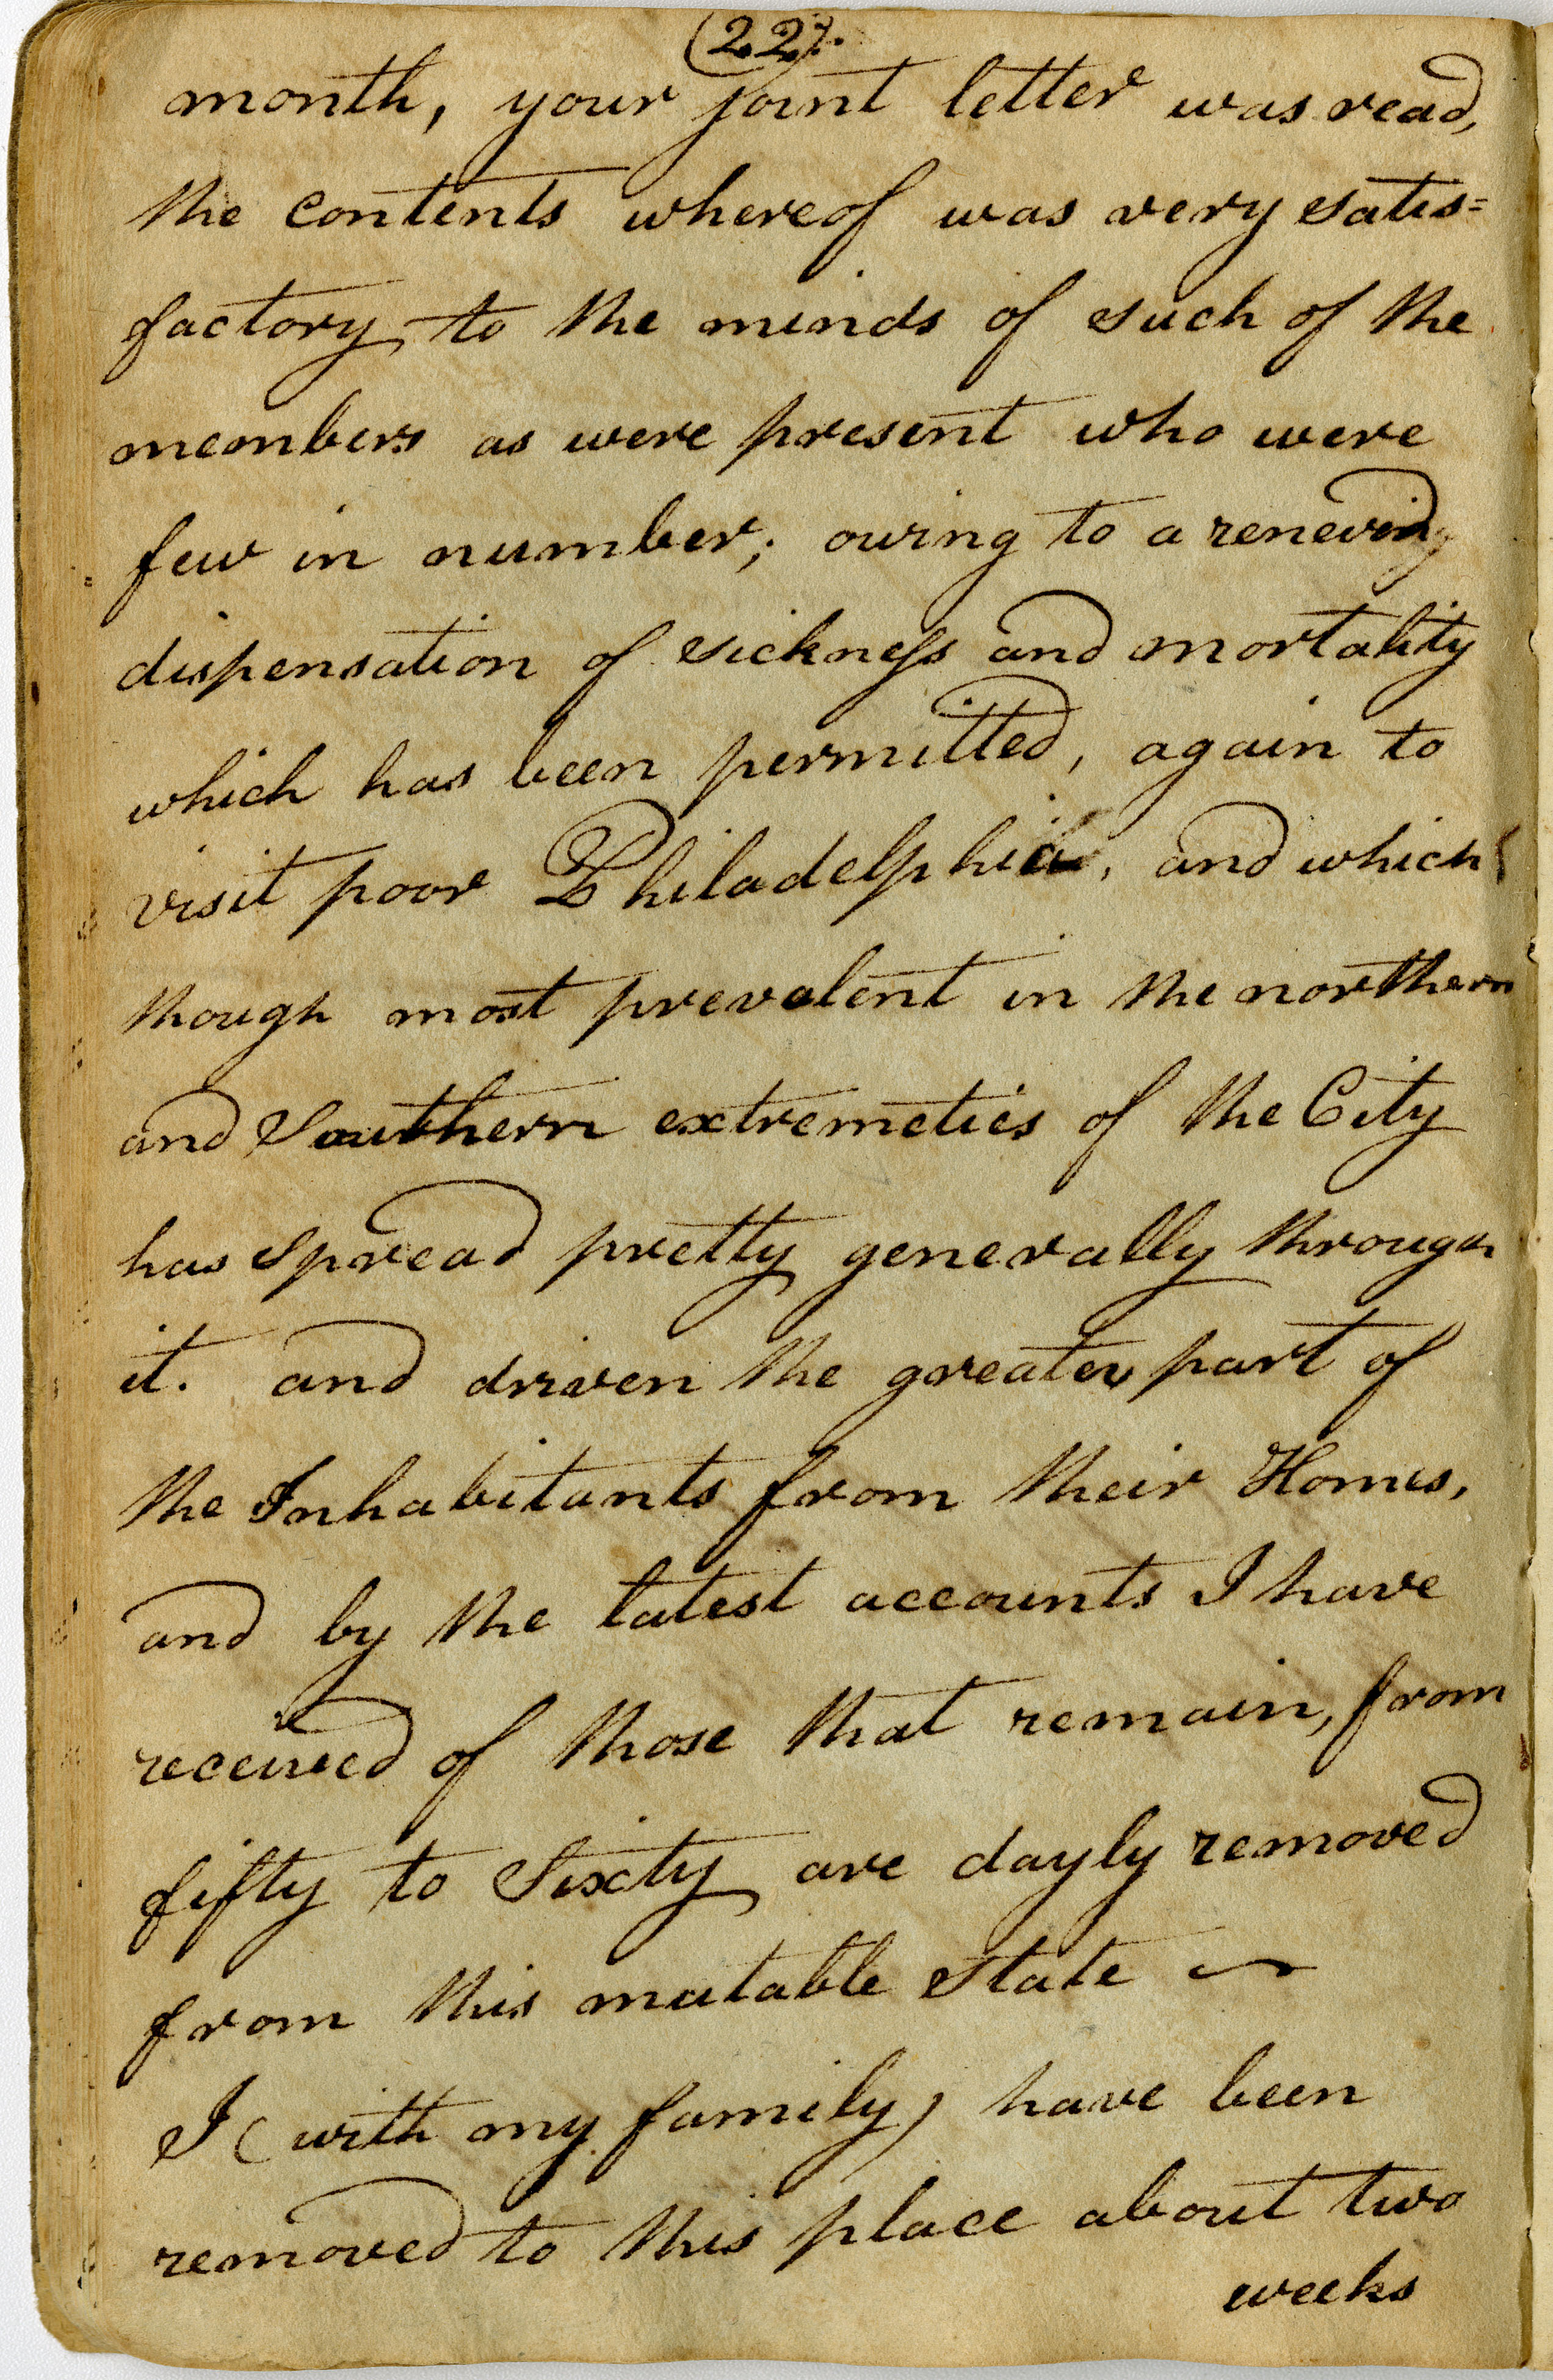 (22).
month, your joint letter was read,
the contents whereof was very satis=
factory to the minds of such of the
members as were present who were
few in number; owing to a renewing
dispensation of sickness and mortality
which has been permitted, again to
visit poor Philadelphia, and which
though most prevalent in the northern
and Southern extremeties of the City
has spread pretty generally through
it. and driven the greater part of
the Inhabitants from their Homes,
and by the latest accounts I have
received of those that remain, from
fifty to Sixty are dayly removed
from this mutable state ~
I (with my family) have been
removed to this place about two
weeks